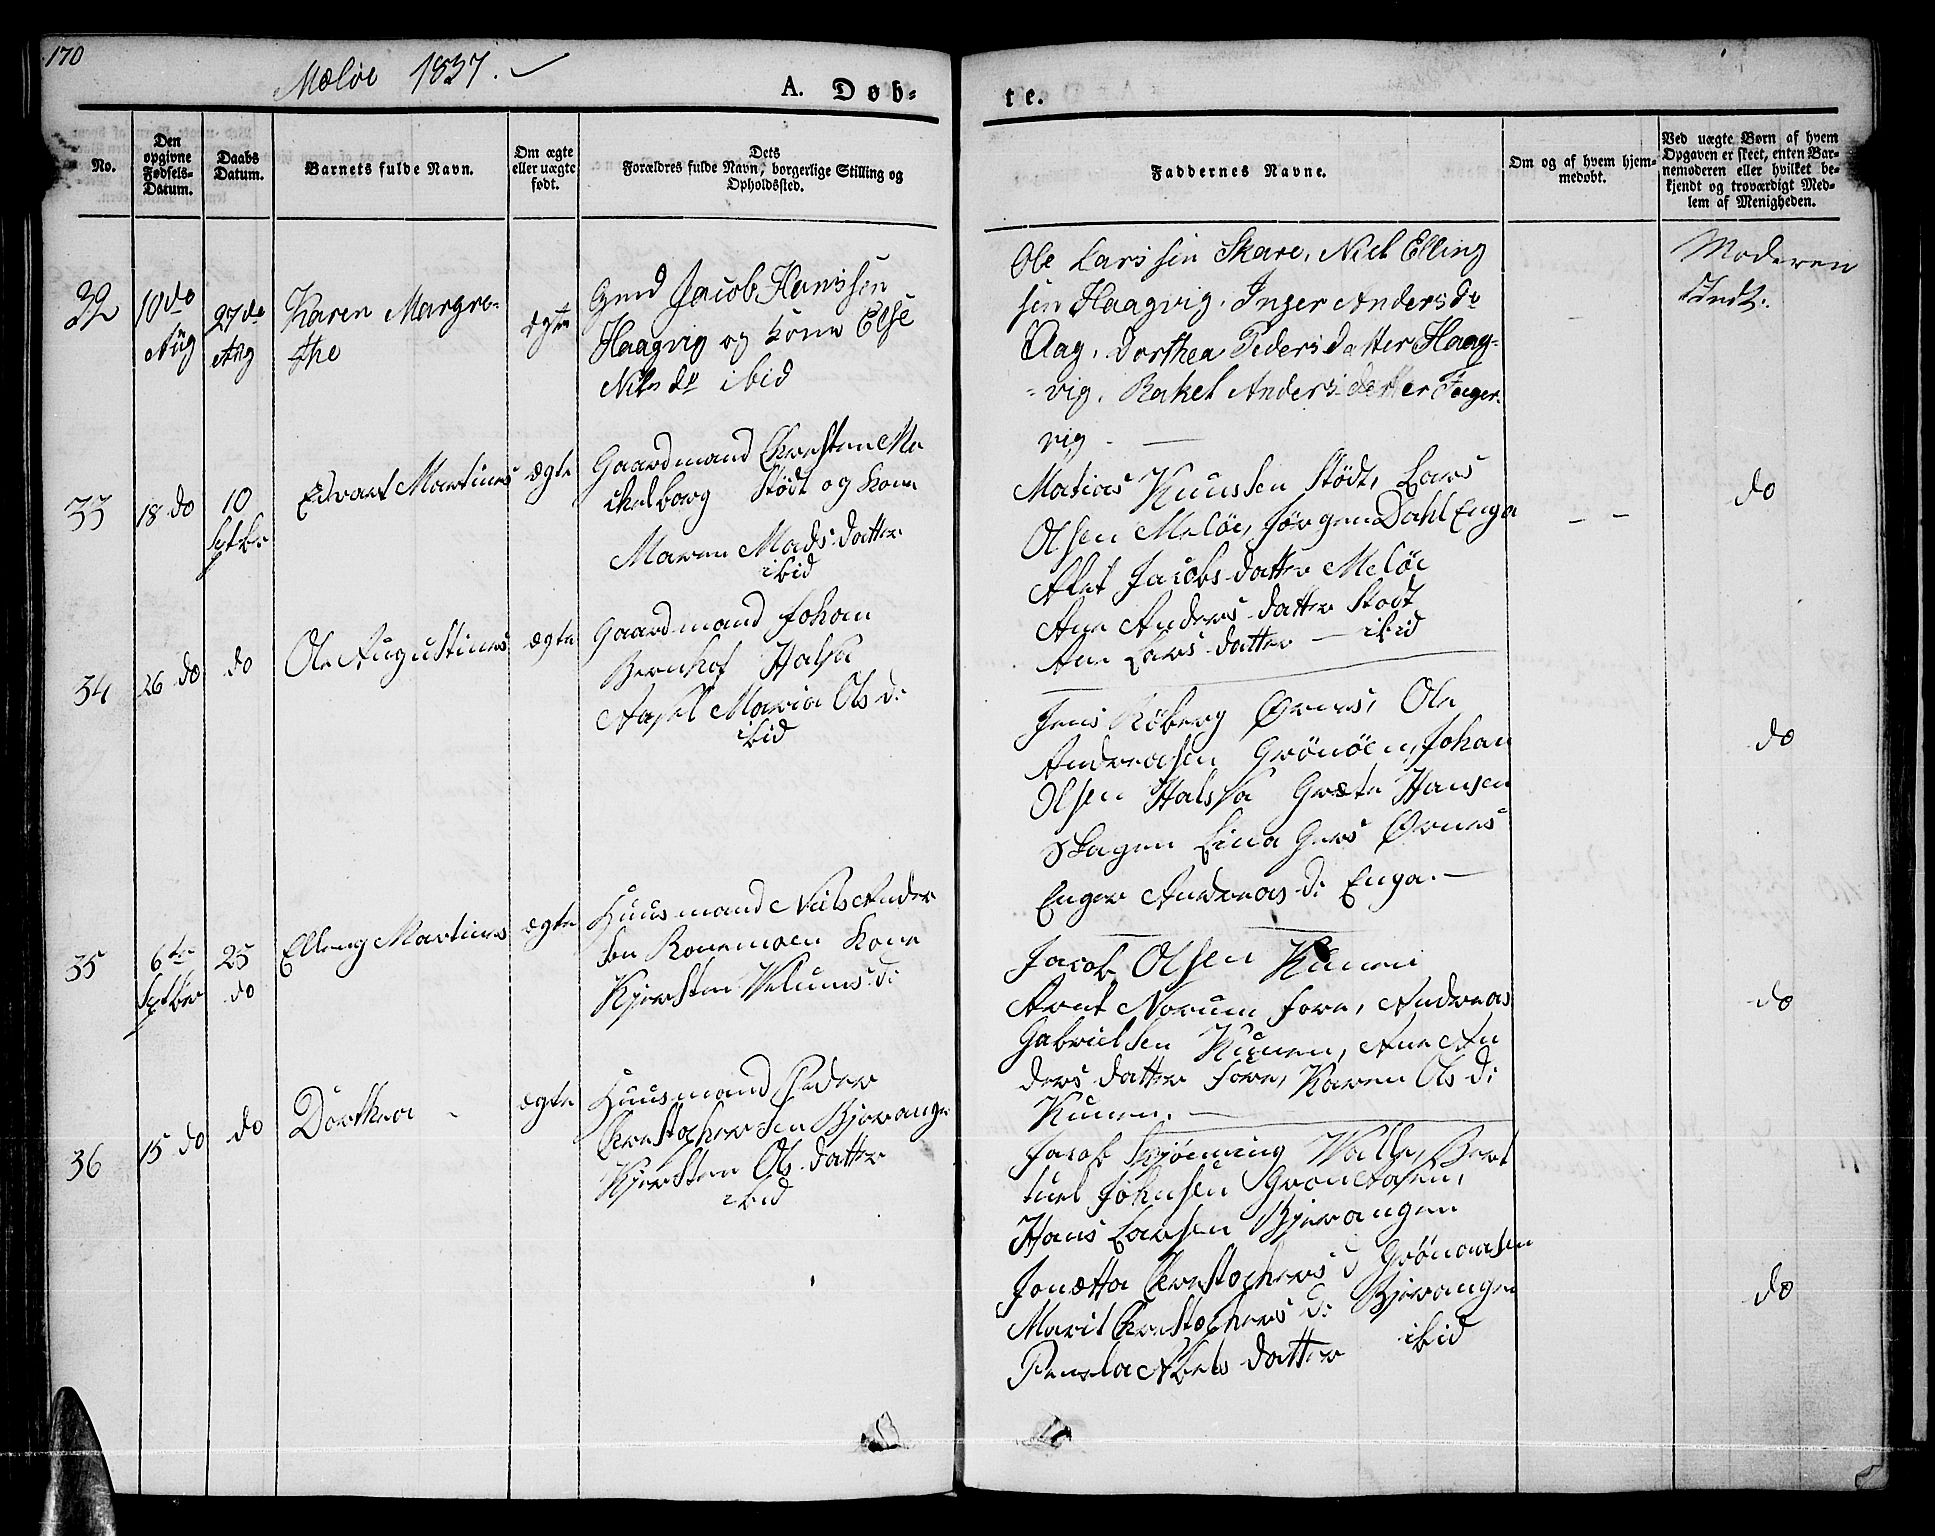 170
Meløe 1837.
A. Døb-
te.
No.
Den
opgivne
Fødsels-
Datum.
Daabs
Datum.
Barnets fulde Navn.
Om ægte
eller uægte
født.
Dets
Forældres fulde Navn, borgerlige Stilling og
Opholdssted.
Faddernes Navne.
Om og af hvem hjem-
medøbt.
Ved uægte Børn af hvem
Opgaven er skeet, enten Bar-
nemoderen eller hvilket be-
kjendt og troværdigt Med-
lem af Menigheden.
32
10de
Aug
27de
Aug
Karen Margre-
the
ægte
Gmd Jacob Hanssen
Haagvig og Kone Else
Nils dr ibid
Ole Larssen Skare, Niel Elling
sen Haagvig, Inger Anders dr
Aag, Dorthea Pedersdatter Haag-
-vig, Rakel Andersdatter Fager-
vig
Moderen
Indt:
33
18 do
10
Septbr
Edvart Martinus
ægte
Gaardmand Christen Mi
chelborg Stödt og Kone
Maren Mads datter
ibid
Matias Knussen Stödt, Lars
Olsen Melöe, Jörgen Dahl Enga
Alet Jacobs datter Melöe
Ane Anders datter Stodt
Ane Lars datter — ibid
do
34
26 do
do
Ole Augustinus
ægte
Gaardmand Johan
Bernhof Halsa
Maria Ols d:
ibid
Jens Röberg Ørnes, Ole
Andreasen Grönöen, Johan
Olsen Halssa Græte Hansen
Skagen Lina Gers Ørnes
Enger Andreas d: Enga.
do
35
6te
Septbr
25
do
Elleng Martinus
ægte
Huusmand Niels Ander
sen Konemoen Kone
Kjersten d:
Jacob Olsen Kunen
Arent Norum Fore, Andreas
Gabrielsen Kunen, Ane An
ders datter Fore, Karen Ols d:
Kunen.
do
36
15 do
do
Dorthea
ægte
Huusmand Peder
Christophersen Bjerangen
Kjersten Ols datter
ibid
Jacob Walle, Bert
tuel Johnsen Gronaasen,
Hans Larsen Bjerangen
Jonætta Christophers d Grönaasen
Marit Christophers d: Bjerangen
Abels datter ibid
do